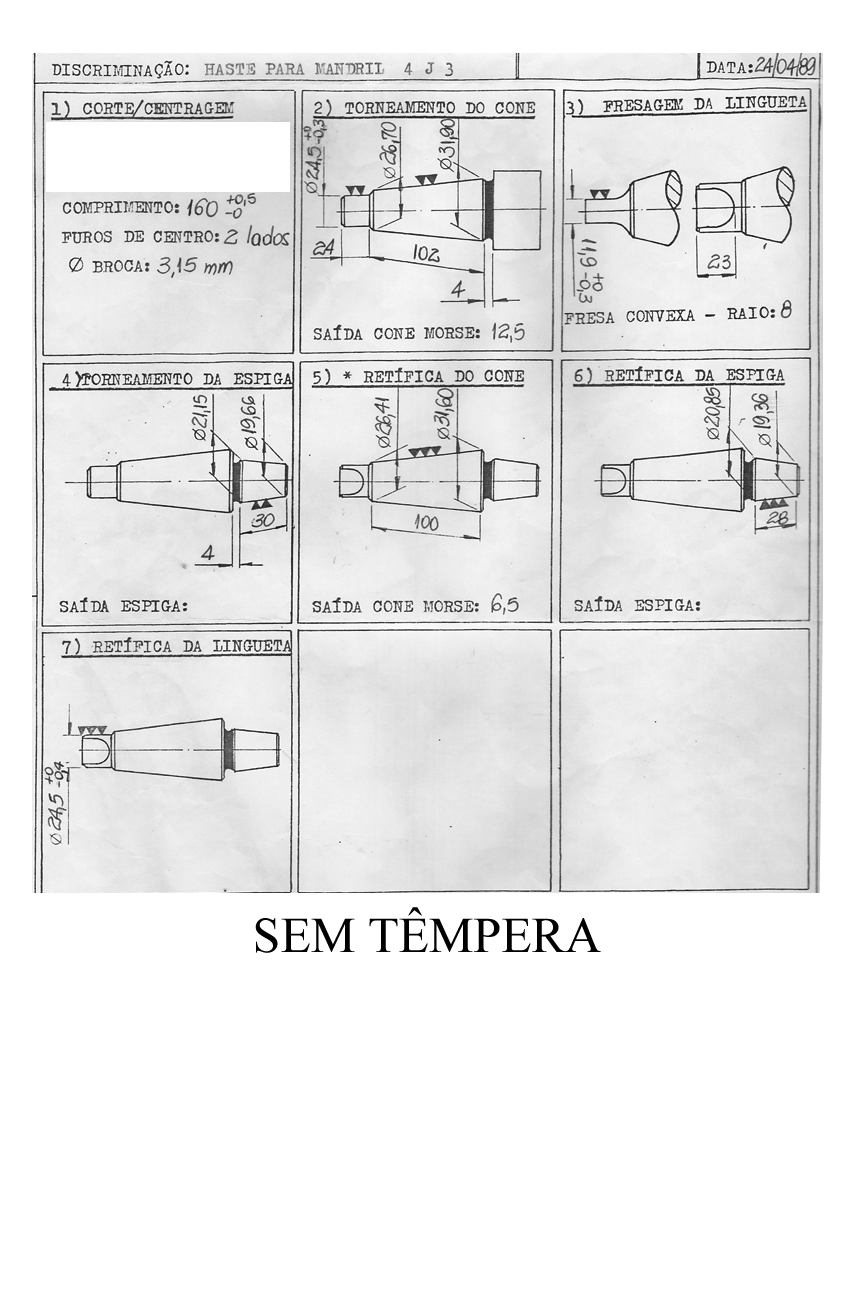 DISCRIMINAÇÃO: HASTE PARA MANDRIL 4 J 3
DATA: 24/04/89
1) CORTE/CENTRAGEM
COMPRIMENTO: 160 +0,5 -0
FUROS DE CENTRO: 2 lados
Ø BROCA: 3,15 mm
2) TORNEAMENTO DO CONE
Ø24,5 +0 -0,3
Ø26,70
Ø31,90
24
102
4
SAÍDA CONE MORSE: 12,5
3) FRESAGEM DA LINGUETA
11,9 +0 -0,3
23
FRESA CONVEXA - RAIO: 8
4) TORNEAMENTO DA ESPIGA
Ø21,15
Ø19,66
30
4
SAÍDA ESPIGA:
5) * RETÍFICA DO CONE
Ø26,41
Ø31,60
100
SAÍDA CONE MORSE: 6,5
6) RETÍFICA DA ESPIGA
Ø20,85
Ø19,36
28
SAÍDA ESPIGA:
7) RETÍFICA DA LINGUETA
Ø24,5 +0 -0,4
SEM TÊMPERA